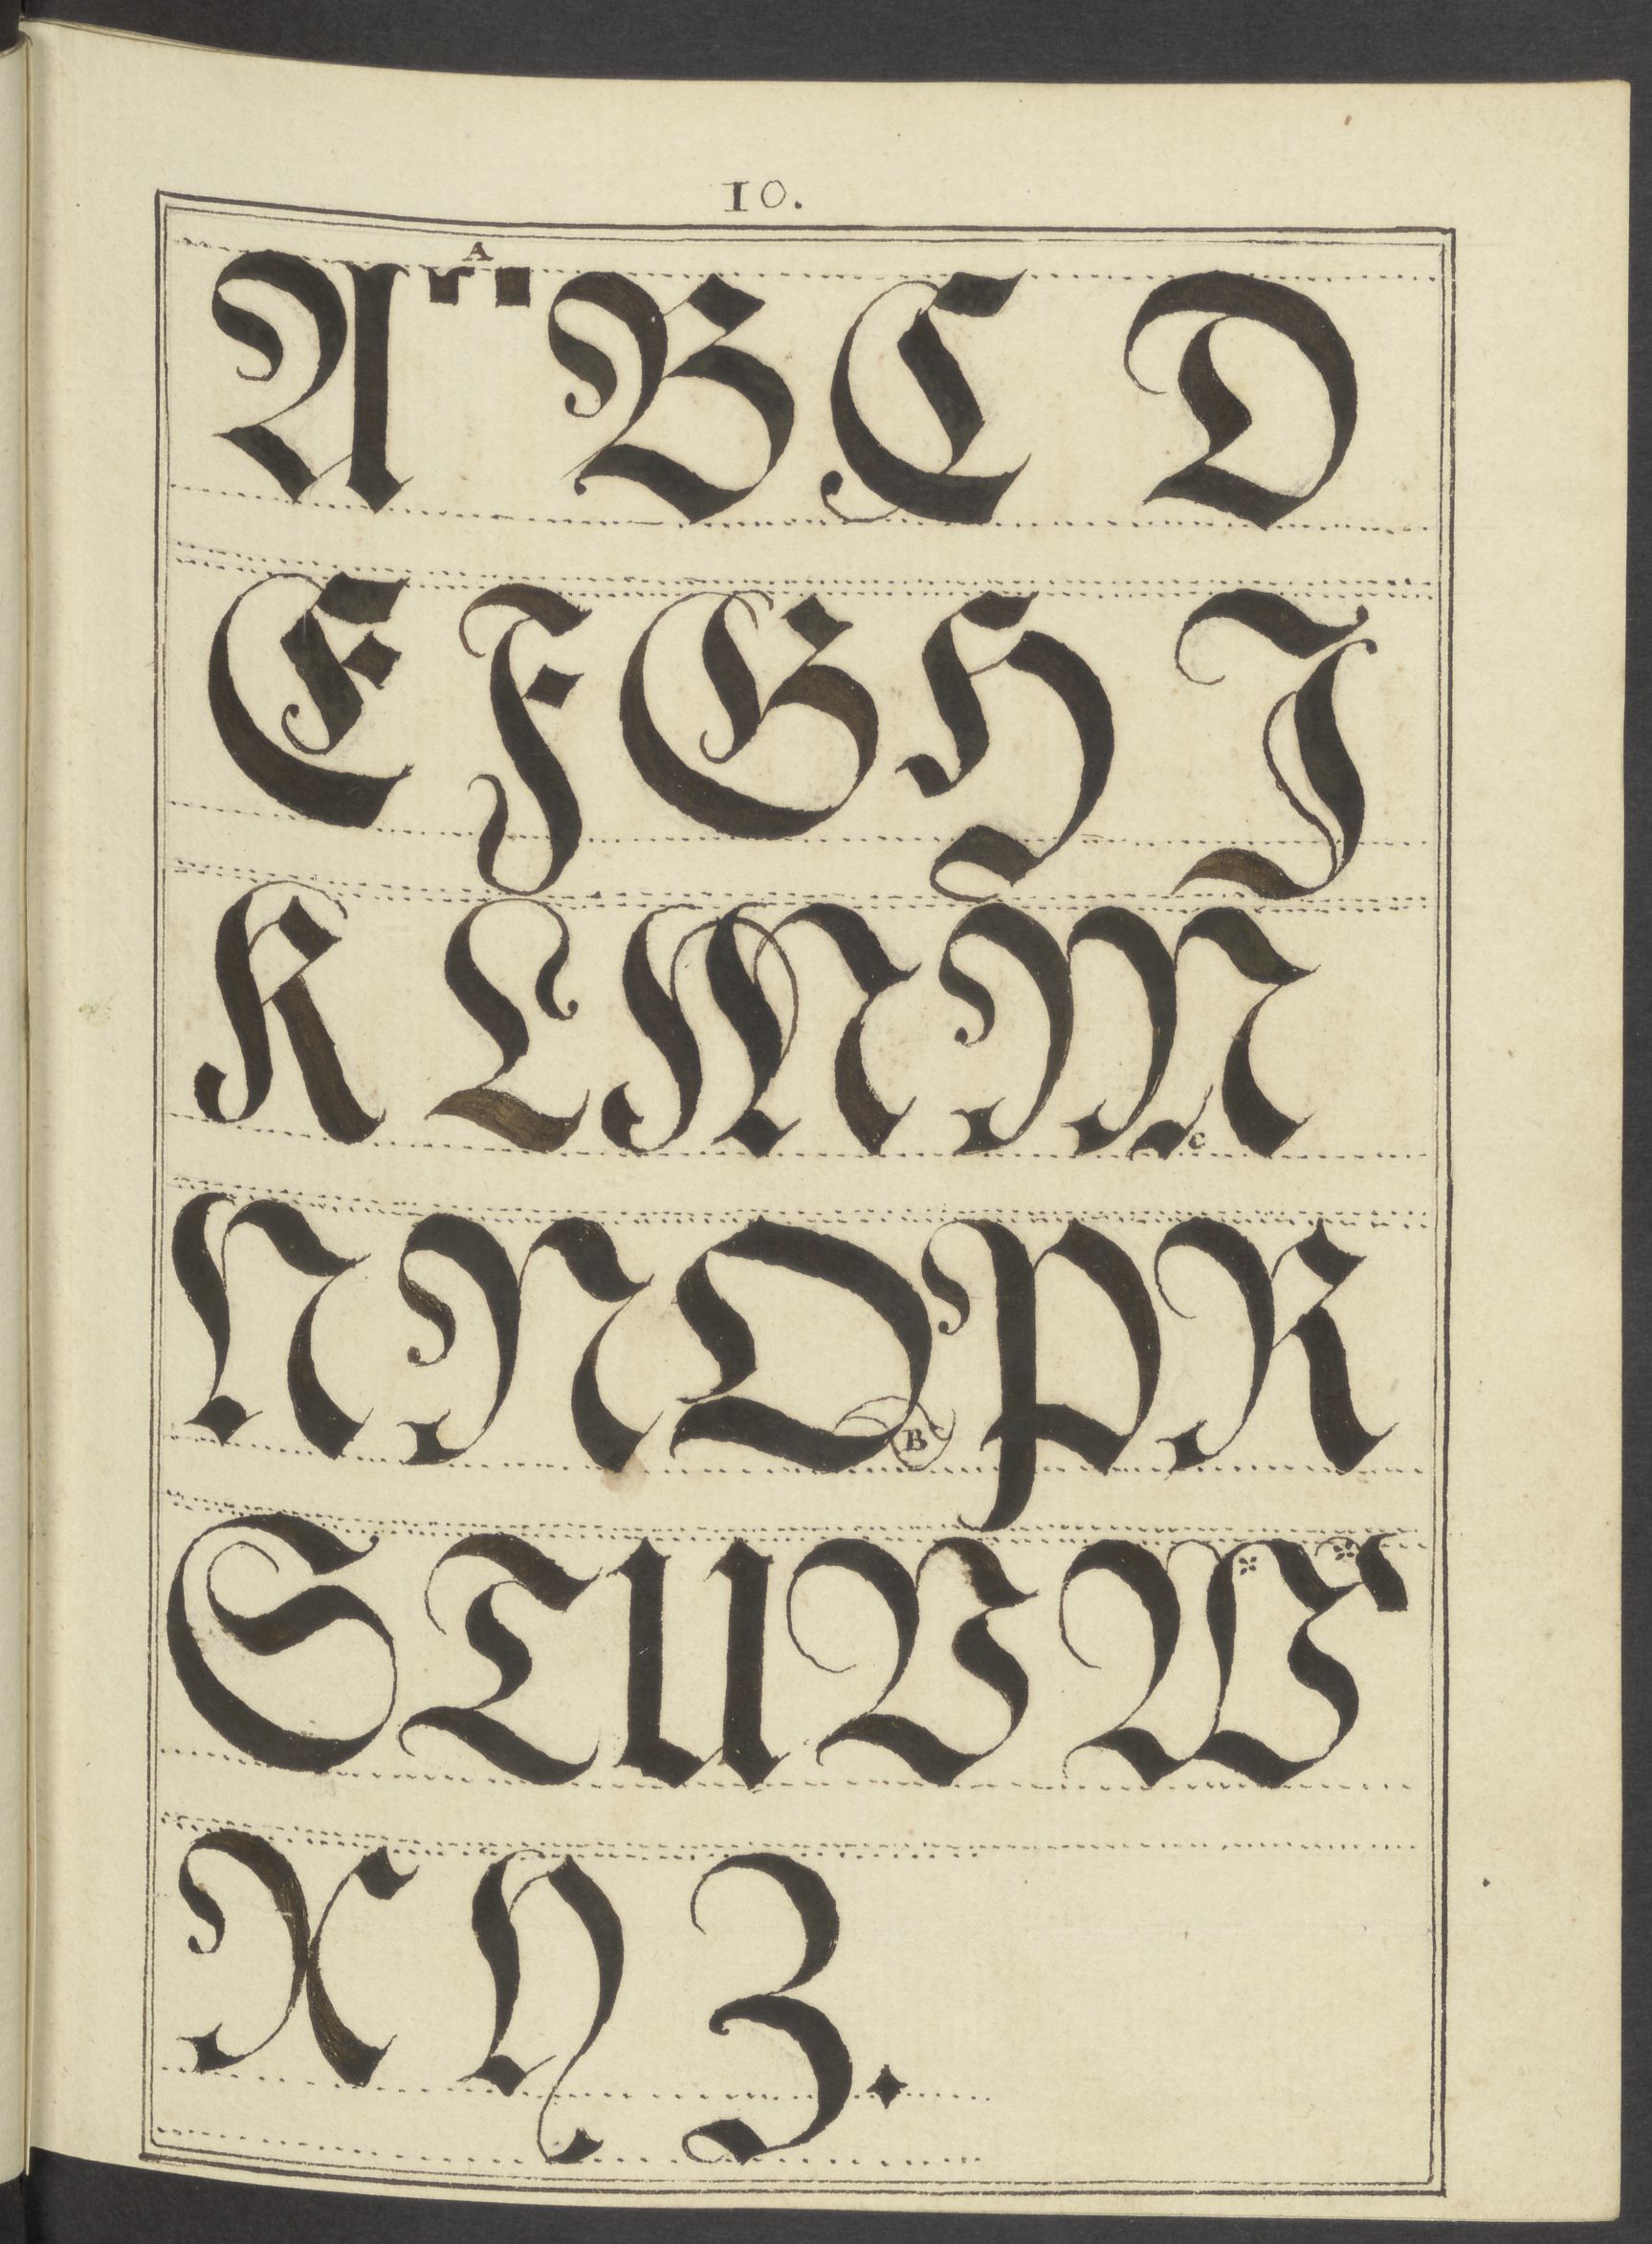 10.
A
A B C D
E F G H I
K L M M c
N N O B P R
S T U V W
X Y Z.